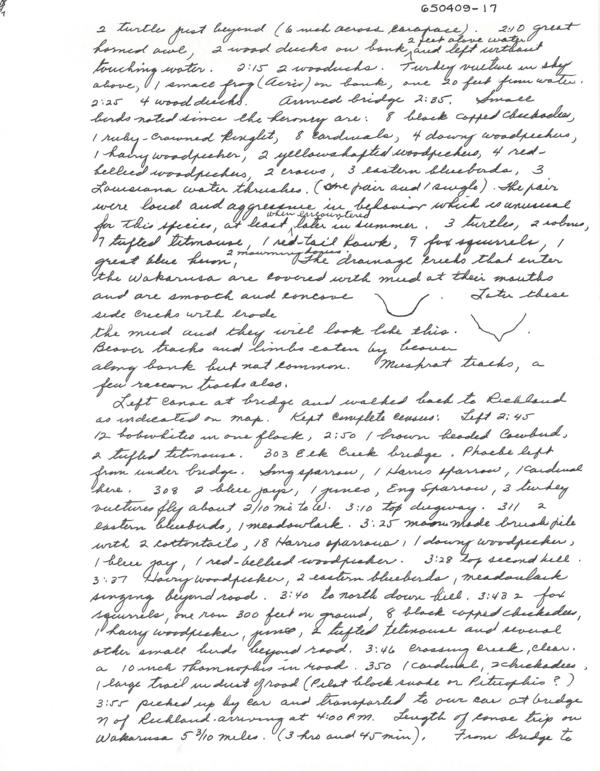 650409-17
2 turtles just beyond (6 inch across carapace). 2:10 great
horned owl, 2 wood ducks on bank 2 feet above water and left without
touching water. 2:15 2 woodducks. Turkey vulture in sky
above, 1 small frog (Acris) on bank, one 20 feet from water.
2:25 4 wood ducks. Arrived bridge 2:35. Small
birds noted since the heronry are: 8 black capped chickadees,
1 ruby-crowned kinglet, 8 cardinals, 4 downy woodpeckers,
1 hairy woodpecker, 2 yellowshafted woodpeckers, 4 red-
bellied woodpeckers, 2 crows, 3 eastern bluebirds, 3
Louisiana water thrushes. (one pair and 1 single). The pair
were loud and aggressive in behavior which is unusual
for this species, at least when encountered later in summer. 3 turtles, 2 robins,
7 tufted titmouse, 1 red-tail hawk, 9 fox squirrels, 1
great blue heron, 2 mourning doves. The drainage creeks that enter
the Wakarusa are covered with mud at their mouths
and are smooth and concave. Later these
side creeks with erode
the mud and they will look like this.
Beaver tracks and limbs eaten by beaver
along bank but not common. Muskrat tracks, a
few raccoon tracks also.
Left canoe at bridge and walked back to Richland
as indicated on map. Kept complete census: Left 2:45
12 bobwhites in one flock, 2:50 1 brown headed Cowbird,
2 tufted titmouse. 303 Elk Creek bridge. Phoebe left
from under bridge. Song sparrow, 1 Harris sparrow, 1 Cardinal
here. 308 2 blue jays, 1 junco, Eng Sparrow, 3 turkey
vultures fly about 2/10 mi to W. 3:10 top dugway. 311 2
eastern bluebirds, 1 meadowlark. 3:25 man made brush pile
with 2 cottontails, 18 Harris sparrows, 1 downy woodpecker,
1 blue jay, 1 red-bellied woodpecker. 3:28 top second hill.
3:37 Hairy woodpecker, 2 eastern bluebirds, meadowlark
singing beyond road. 3:40 to north down hill. 3:43 2 fox
squirrels, one ran 300 feet on ground, 8 black capped chickadees,
1 hairy woodpecker, junco, 2 tufted titmouse and several
other small birds beyond road. 3:46 crossing creek, clear.
a 10 inch Thamnophis in road. 350 1 Cardinal, 2 chickadees,
1 large trail in dust of road (Pilot black snake or Pituophis?)
3:55 picked up by car and transported to our car at bridge
N of Richland arriving at 4:00 P.M. Length of canoe trip on
Wakarusa 5 3/10 miles. (3 hrs and 45 min). From bridge to